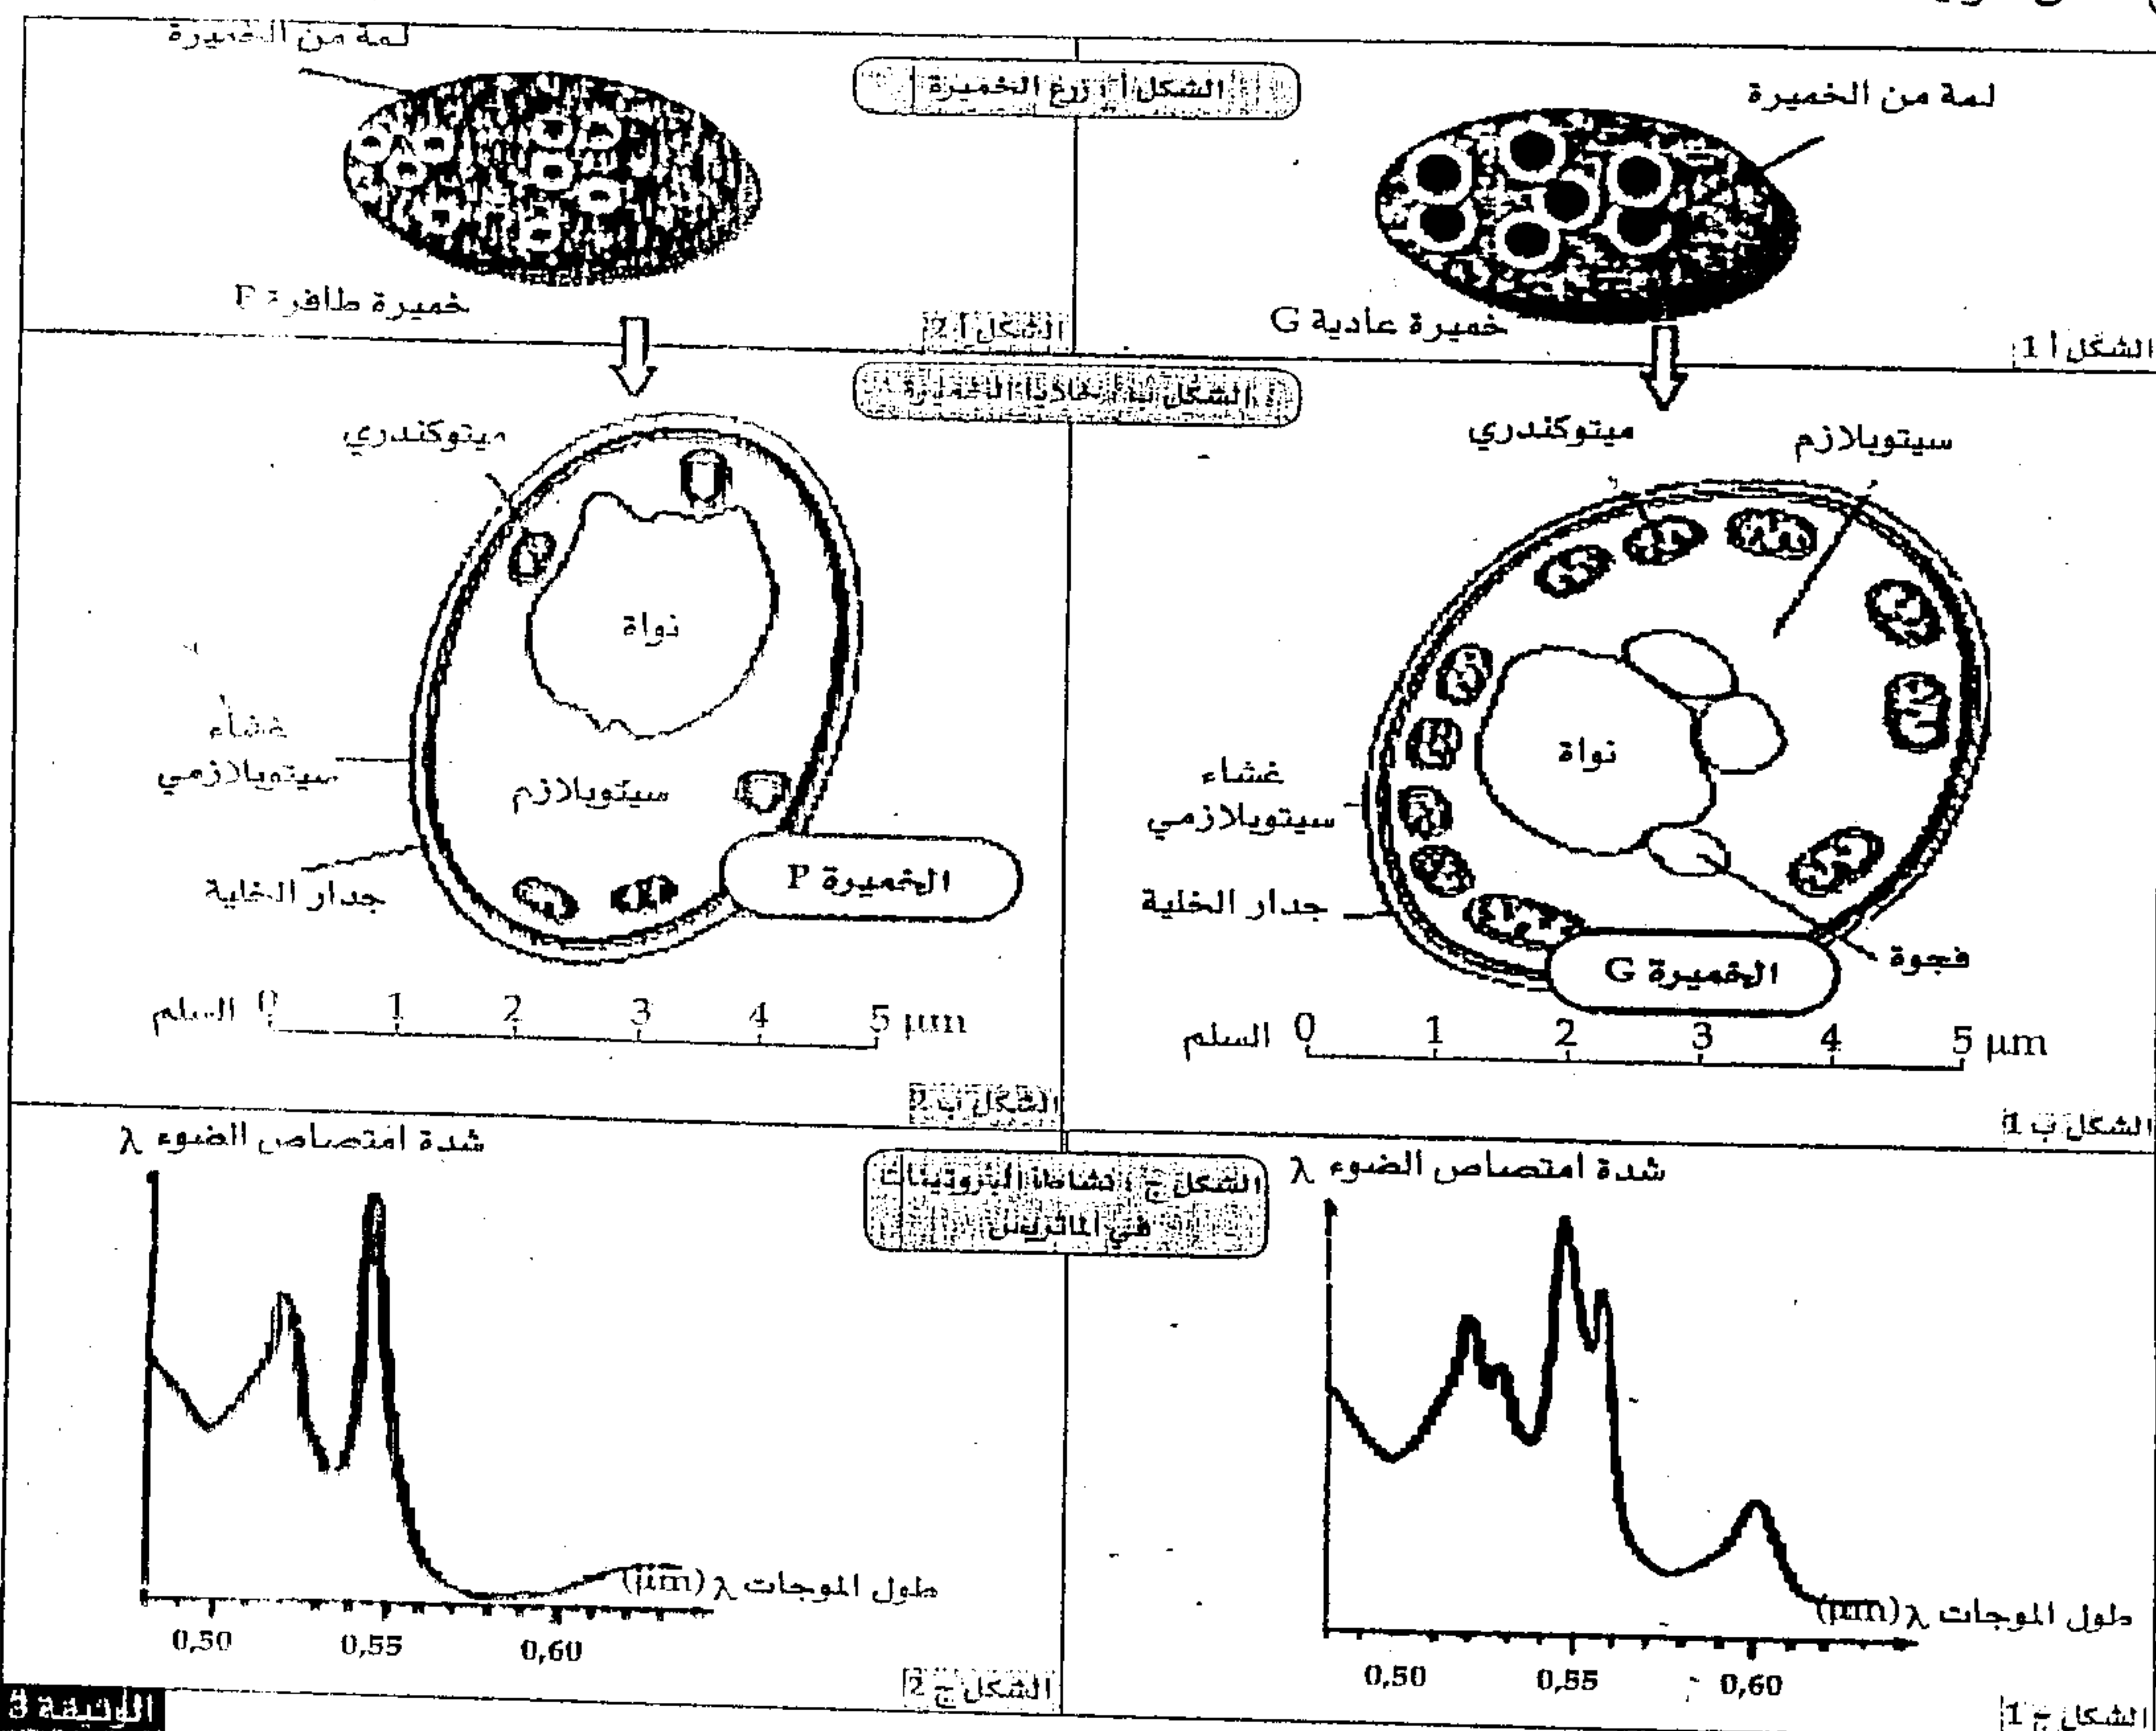 الشكل أ : زرع الخميرة
لمة من الخميرة
خميرة عادية G
الشكل أ 1
لمة من الخميرة
خميرة طافرة
الشكل أ 2
الشكل ب : خلايا الخميرة
ميتوكندري
سيتوبلازم
نواة
غشاء
سيتوبلازمي
جدار الخلية
فجوة
الخميرة G
السلم 0 1 2 3 4 5 µm
الشكل ب 1
ميتوكندري
نواة
غشاء
سيتوبلازمي
سيتوبلازم
جدار الخلية
الخميرة P
السلم 0 1 2 3 4 5 µm
الشكل ب 2
الشكل ج : نشاط البروتينات
في الماتريس
شدة امتصاص الضوء λ
طول الموجات λ (µm)
0,50 0,55 0,60
الشكل ج 1
شدة امتصاص الضوء λ
طول الموجات λ (µm)
0,50 0,55 0,60
الشكل ج 2
الوثيقة 3